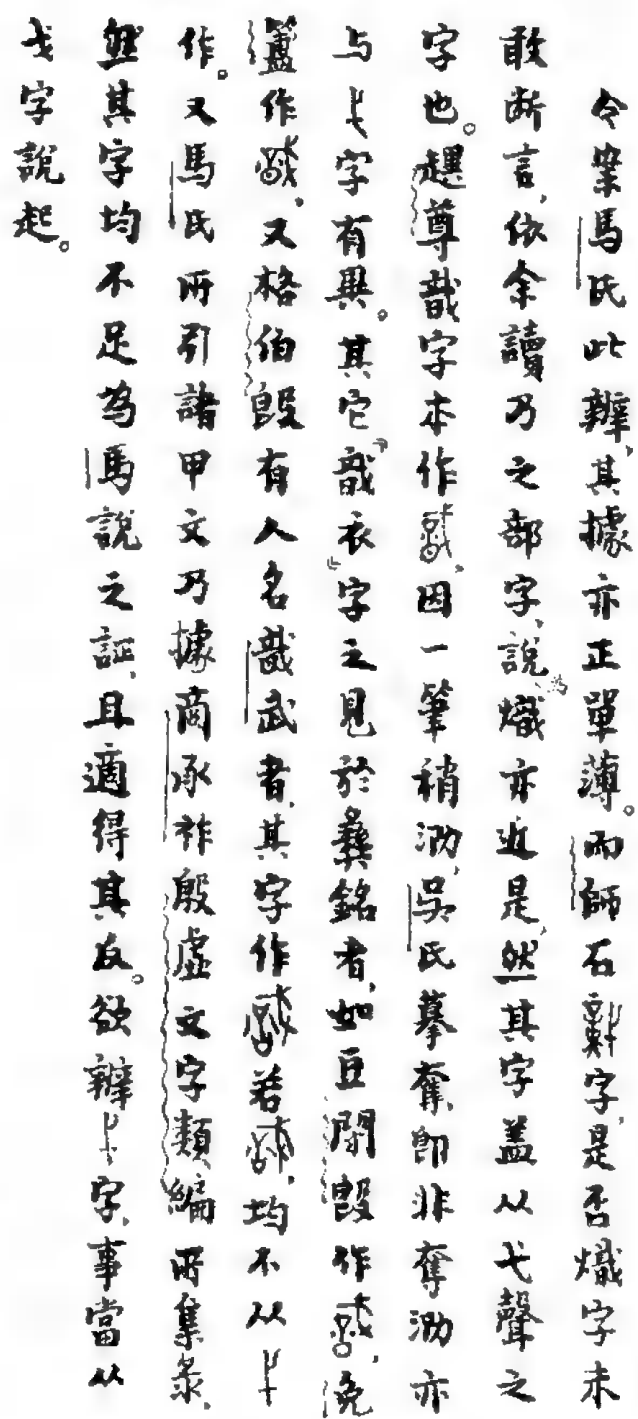 令案馬氏此辨，其據亦正單薄。而師石字，是否熾字未
敢断言，依余讀乃之部字，說為熾亦近是，然其字盖从弋聲之
字也。趩尊戠字本作，因一筆稍泐，吳氏摹奪，即非奪泐亦
与字有異。其它「戠衣」字之見於彝銘者，如豆閉𣪘作，免
簠作，又格伯𣪘有人名戠武者，其字作若，均不从
作。又馬氏所引諸甲文乃據商承祚殷虛文字類編所集彔，
然其字均不足為馬說之証，且適得其反。欲辨字，事當从
弋字說起。